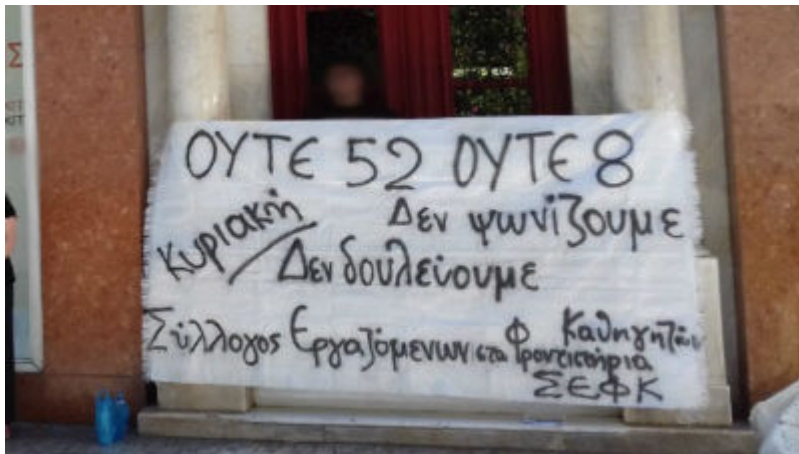 ΟΥΤΕ 52 ΟΥΤΕ 8
Κυριακή
Δεν ψωνίζουμε
Δεν δουλεύουμε
Σύλλογος Εργαζόμενων στα Φροντιστήρια
Καθηγητών
ΣΕΦΚ
Σ